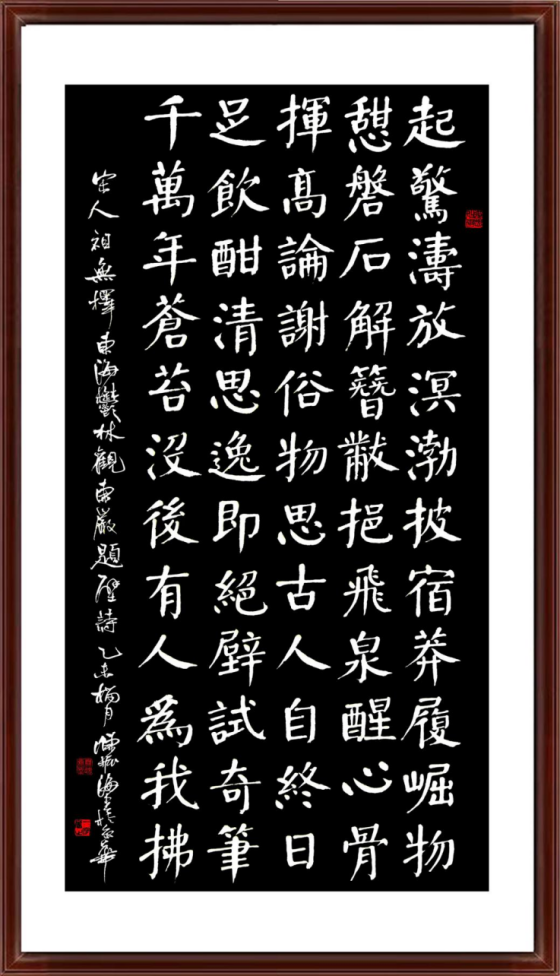 起驚濤放溟渤披宿莽履崛物
憩磐石解簪黻挹飛泉醒心骨
揮髙論謝俗物思古人自終日
足飲酣清思逸即絕壁試奇筆
千萬年蒼苔沒後有人為我拂
宋人祖無擇東海鬱林觀東巖題壁詩乙未梅月